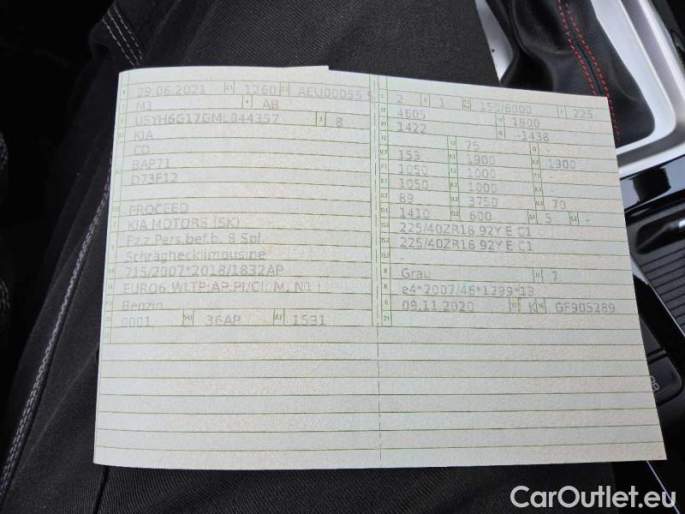 29.06.2021 1260 AEU00055
M1 AB
U5YH6G17GML044357 8
KIA
CD
BAP71
D73F12
PROCEED
KIA MOTORS (SK)
Fz.z.Pers.bef.b. 8 Spl.
Schräghecklimousine
715/2007*2018/1832AP
EURO6;WLTP;AP;PI/CI; M, N1 I
Benzin
0001 36AP 1591
2 1 150/6000 225
4605 1800
1422 -1438
75 -
153 1900 1900
1050 1000 -
1050 1000 -
89 3750 70
1410 600 5 -
225/40ZR18 92Y E C1
225/40ZR18 92Y E C1
-
Grau 7
e4*2007/46*1299*13
09.11.2020 K GF905289
CarOutlet.eu